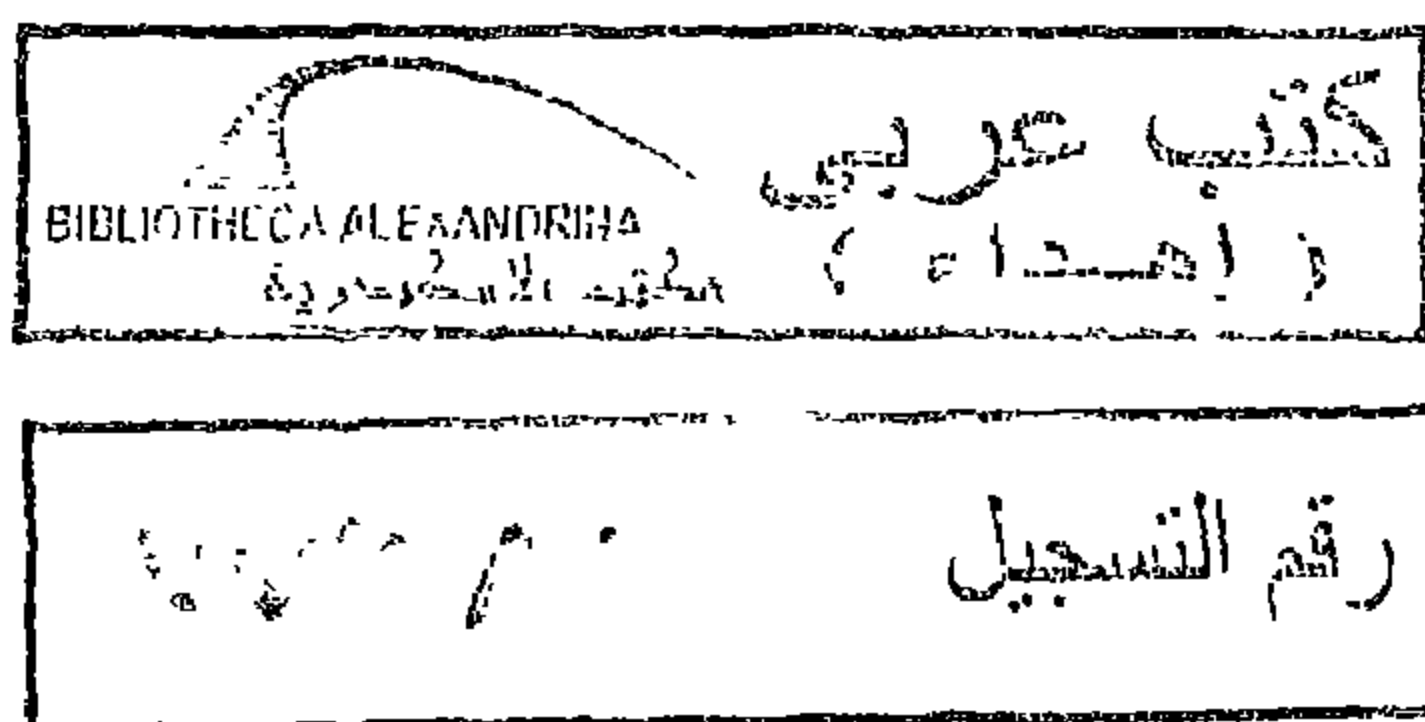 كتب عربى
( إهداء )
BIBLIOTHECA ALEXANDRINA
مكتبة الإسكندرية
رقم التسجيل